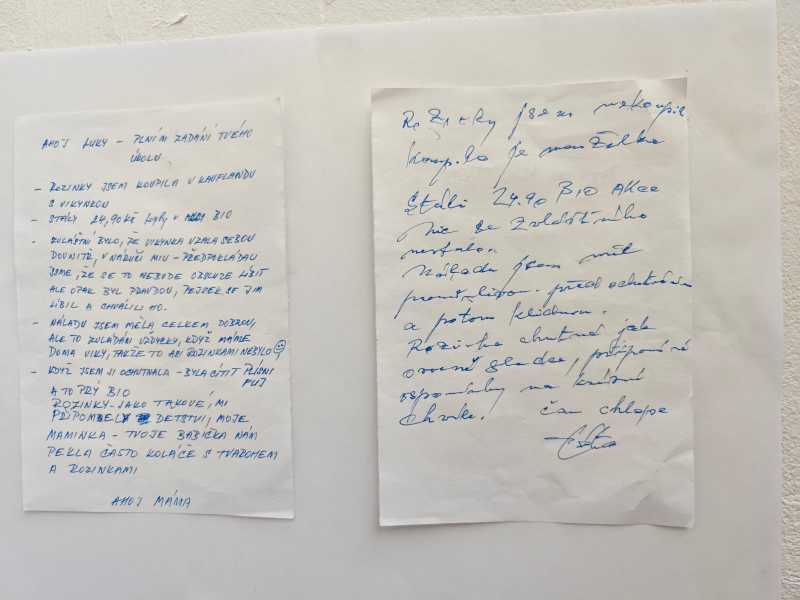 AHOJ LUKY – PLNÍM ZADÁNÍ TVÉHO
ÚKOLU
– ROZINKY JSEM KOUPILA V KAUFLANDU
S VIKYNKOU
– STÁLY 24,90 KČ BYLY V BIO
– ZVLÁŠTNÍ BYLO, ŽE VIKYNKA VZALA SEBOU
DOVNITŘ, V NÁRUČI MIU – PŘEDPOKLÁDALI
JSME, ŽE SE TO NEBUDE OBSLUZE LÍBIT
ALE OPAK BYL PRAVDOU, PEJSEK SE JIM
LÍBIL A CHVÁLILI HO.
– NÁLADU JSEM MĚLA CELKEM, DOBROU,
ALE TO ZVLÁDÁM VŽDYCKY, KDYŽ MÁME
DOMA VIKY, TAKŽE TO ANI ROZINKAMI NEBYLO
– KDYŽ JSEM JI OCHUTNALA – BYLA CÍTIT PLÍSNÍ
FUJ
A TO PRÝ BIO
ROZINKY – JAKO TAKOVÉ, MI
PŘIPOMĚLY DETSTVI, MOJE
MAMINKA – TVOJE BABIČKA NÁM
PEKLA ČASTO KOLÁČE S TVAROHEM
A ROZINKAMI
AHOJ MÁMA
Rozinky jsem nekoupil
koupila je manželka
Stáli 24.90 BIO Akce
Nic se zvláštního
nestalo.
Náladu jsem měl
proměnlivou. před ochutnáním
a potom klidnou.
Rozinka chutná jak
ovocně sladce, připomíná
vzpomínky na krásné
chvíle. čau chlape